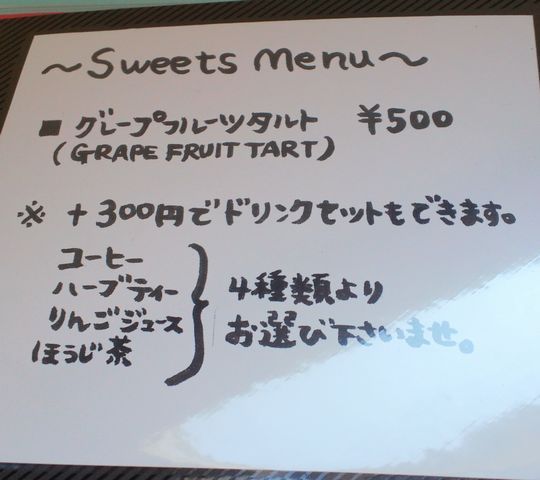 ～Sweets menu～
■ グレープフルーツタルト ¥500
(GRAPE FRUIT TART)
※ +300円でドリンクセットもできます。
コーヒー
ハーブティー
りんごジュース
ほうじ茶
4種類より
お選び下さいませ。